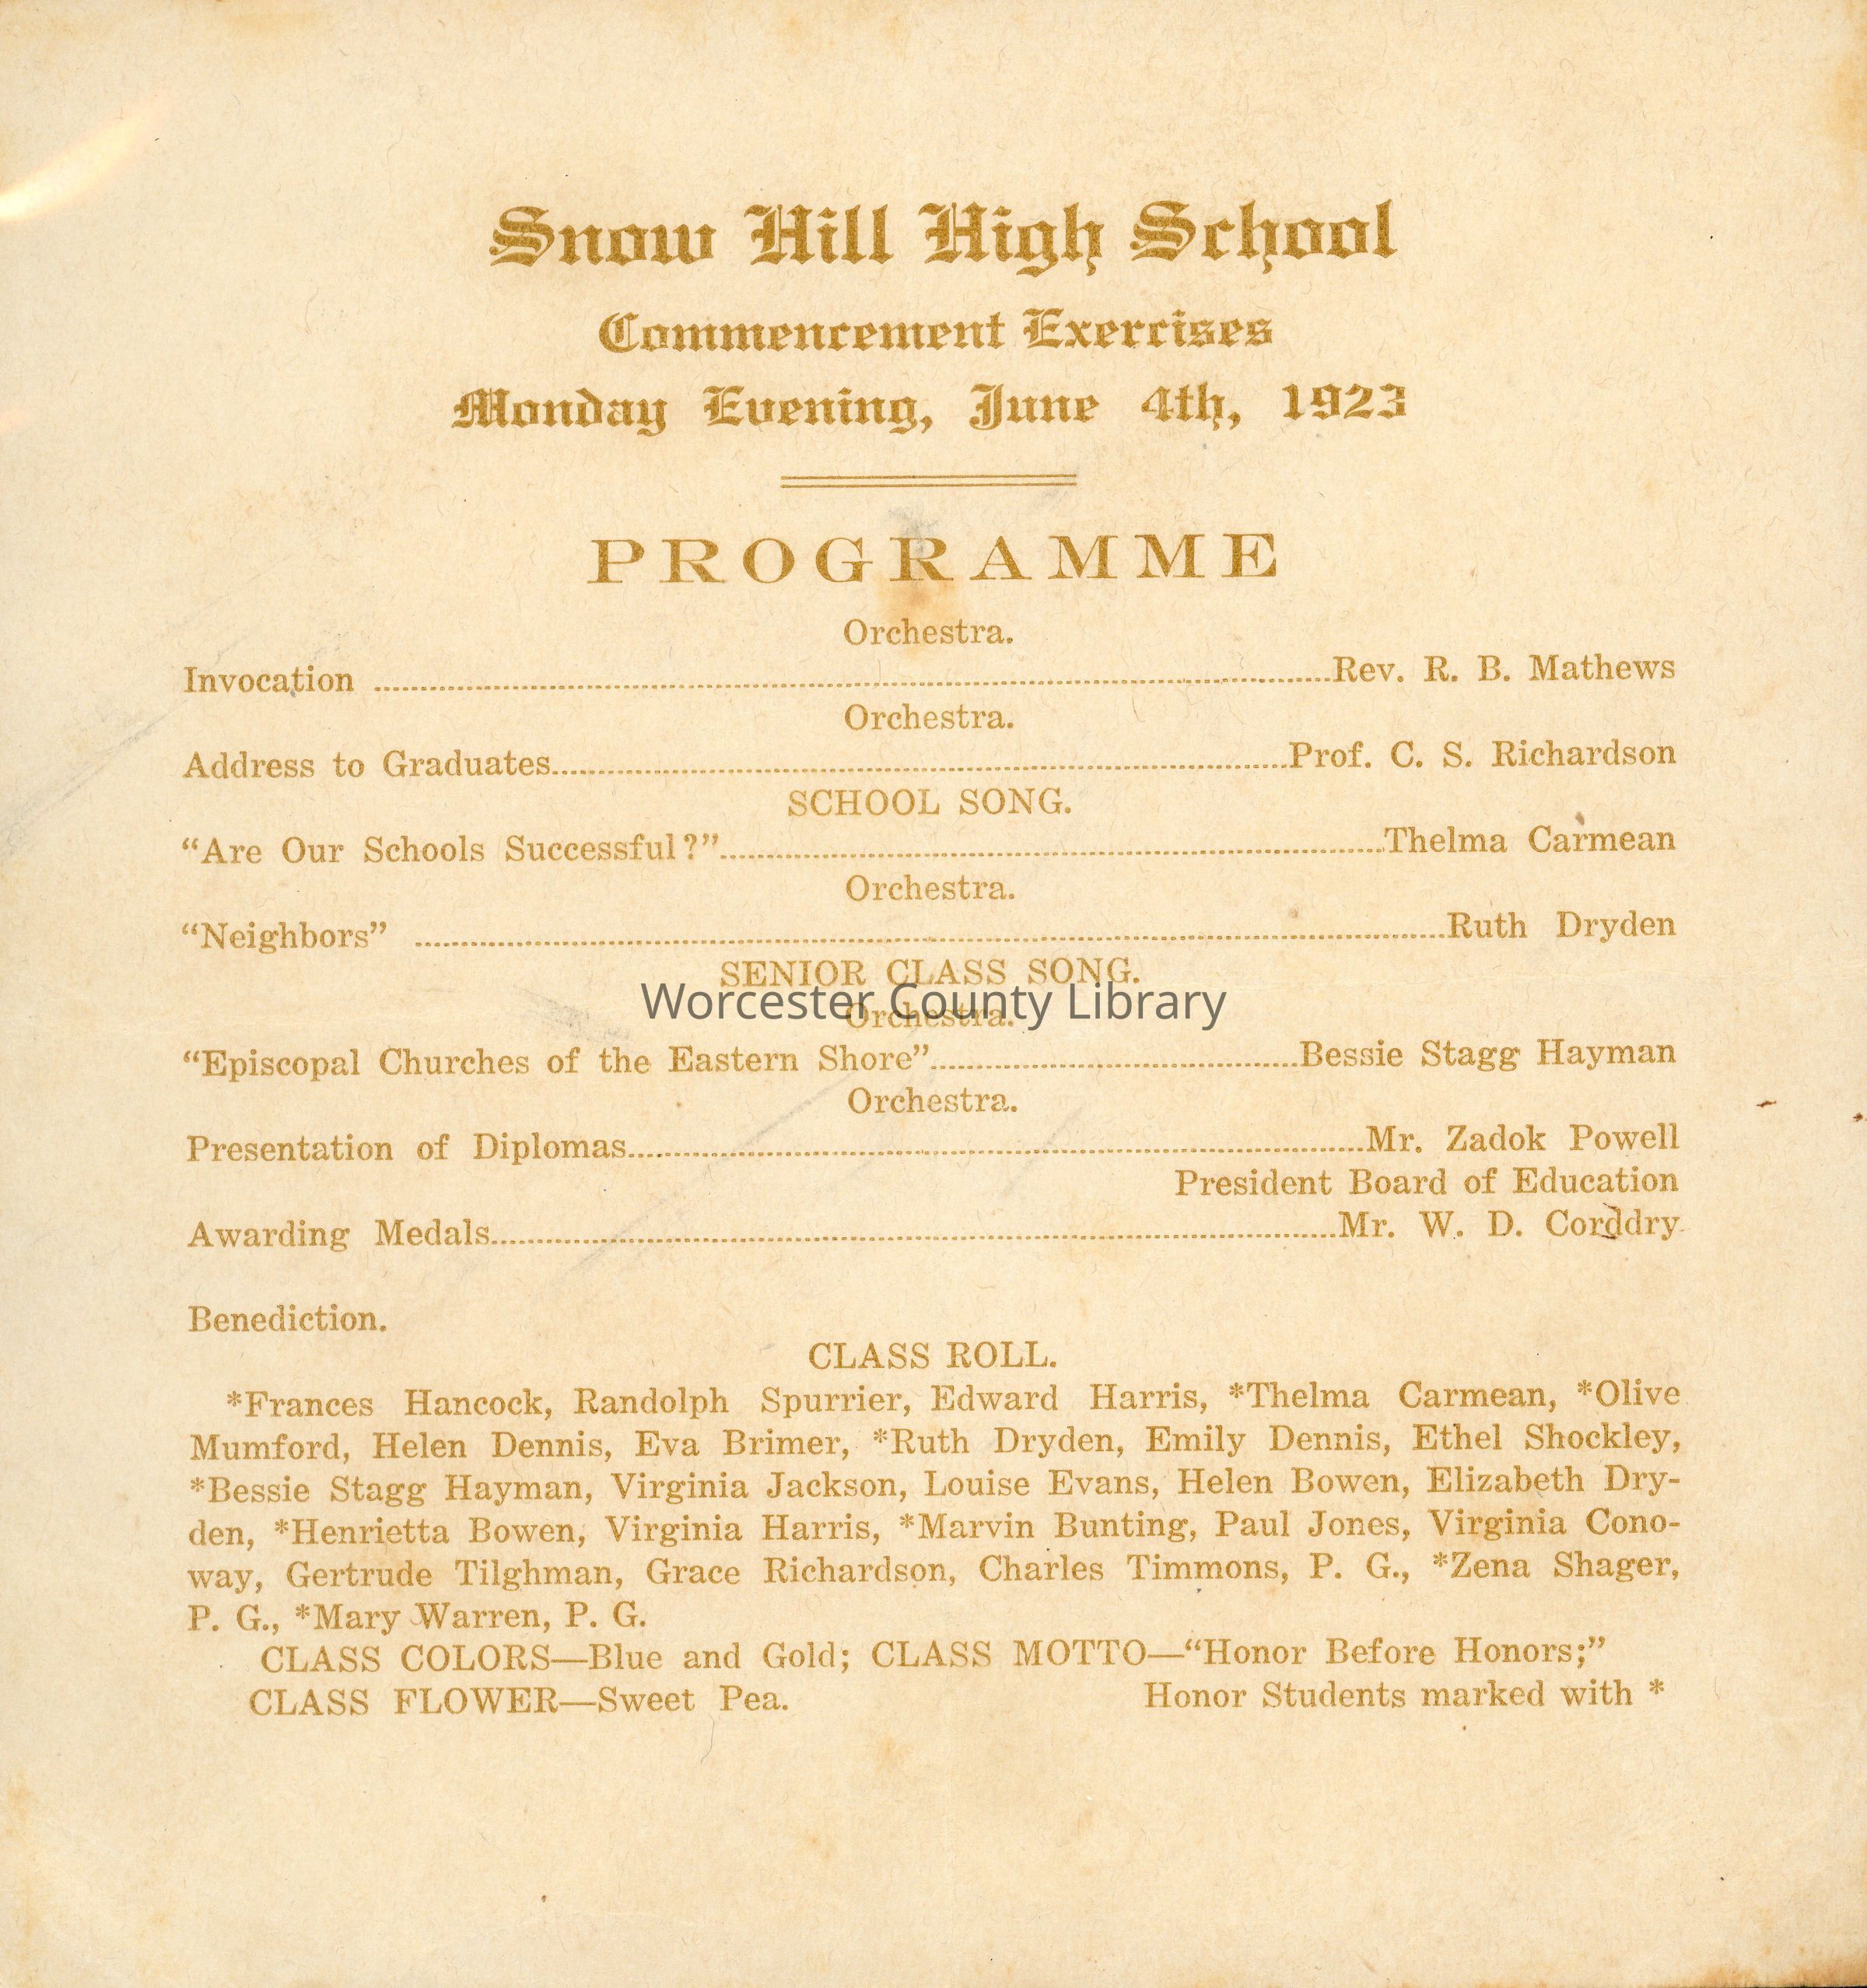 Snow Hill High School
Commencement Exercises
Monday Evening, June 4th, 1923
PROGRAMME
Orchestra.
Invocation ........Rev. R. B. Mathews
Orchestra.
Address to Graduates........Prof. C. S. Richardson
SCHOOL SONG.
“Are Our Schools Successful?”........Thelma Carmean
Orchestra.
“Neighbors” ........Ruth Dryden
SENIOR CLASS SONG.
Worcester County Library
Orchestra.
“Episcopal Churches of the Eastern Shore”........Bessie Stagg Hayman
Orchestra.
Presentation of Diplomas........Mr. Zadok Powell
President Board of Education
Awarding Medals........Mr. W. D. Corddry
Benediction.
CLASS ROLL.
*Frances Hancock, Randolph Spurrier, Edward Harris, *Thelma Carmean, *Olive
Mumford, Helen Dennis, Eva Brimer, *Ruth Dryden, Emily Dennis, Ethel Shockley,
*Bessie Stagg Hayman, Virginia Jackson, Louise Evans, Helen Bowen, Elizabeth Dry-
den, *Henrietta Bowen, Virginia Harris, *Marvin Bunting, Paul Jones, Virginia Cono-
way, Gertrude Tilghman, Grace Richardson, Charles Timmons, P. G., *Zena Shager,
P. G., *Mary Warren, P. G.
CLASS COLORS—Blue and Gold; CLASS MOTTO—“Honor Before Honors;”
CLASS FLOWER—Sweet Pea. Honor Students marked with *